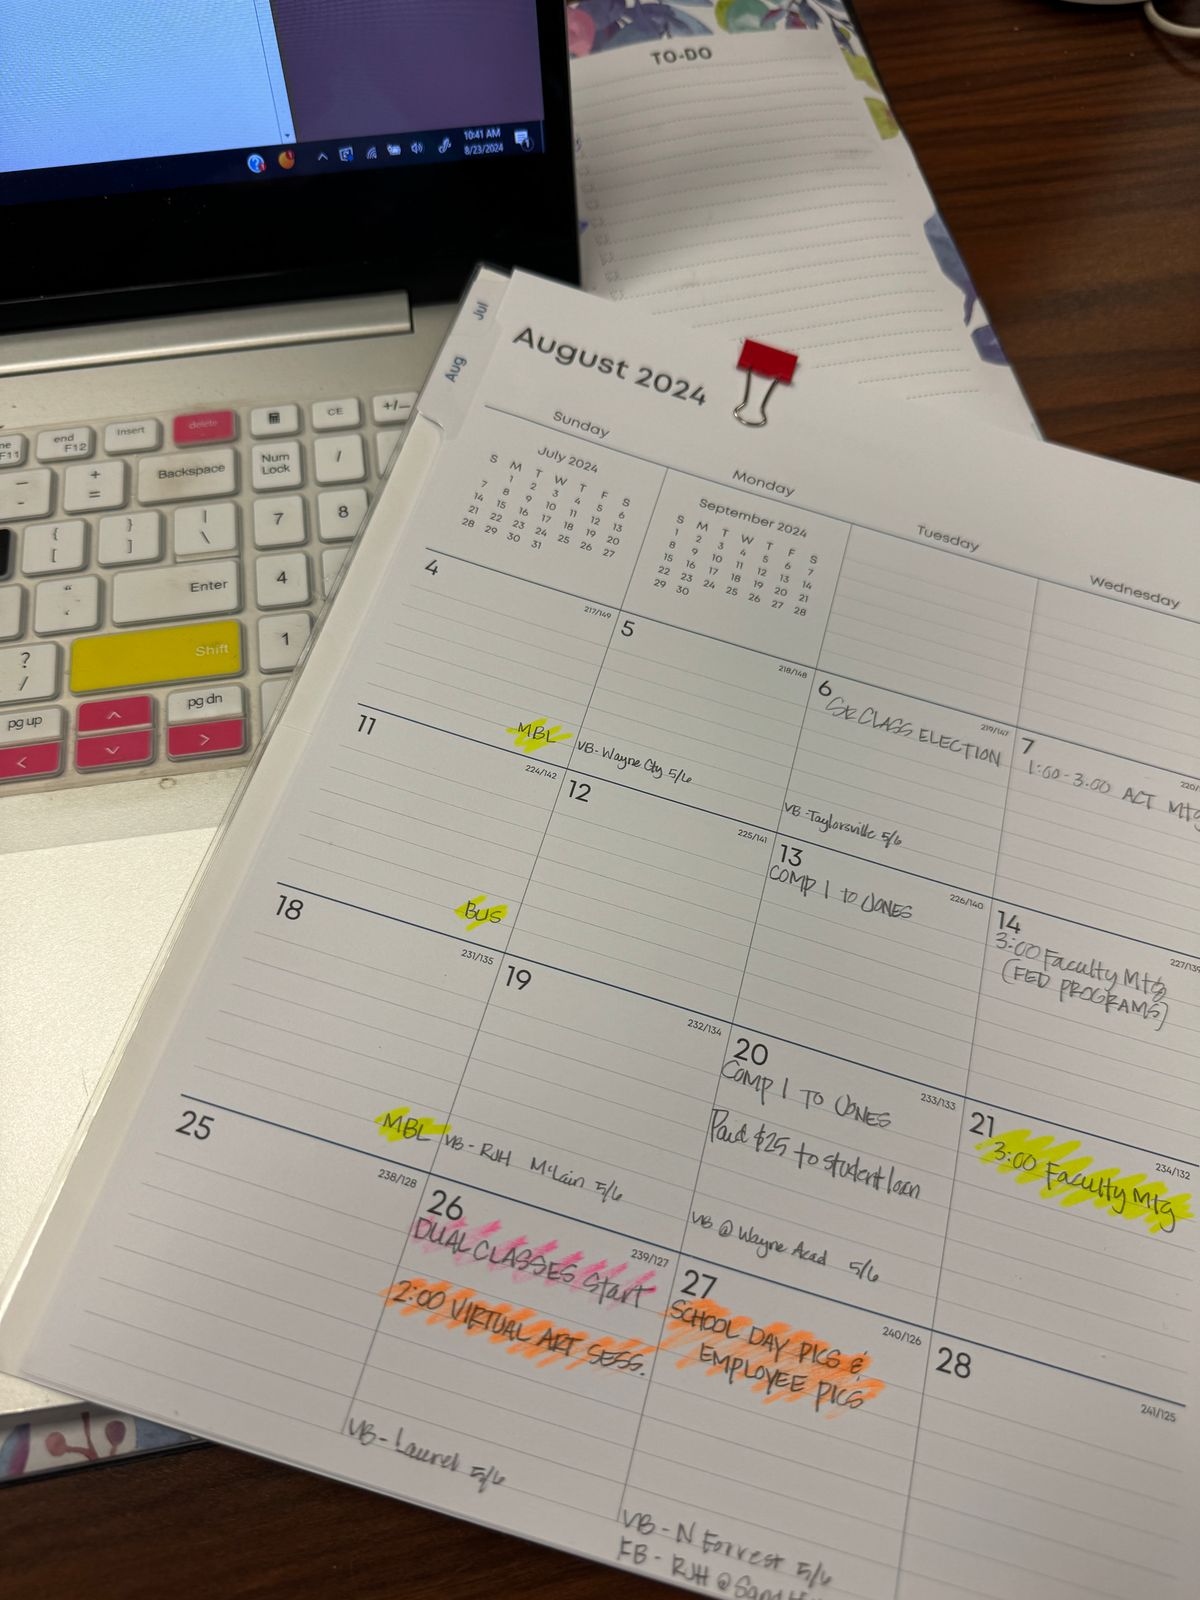 10:41 AM
8/23/2024
1
TO-DO
Jul
Aug
August 2024
Sunday
Monday
Tuesday
Wednesday
July 2024
S M T W T F S
1 2 3 4 5 6
7 8 9 10 11 12 13
14 15 16 17 18 19 20
21 22 23 24 25 26 27
28 29 30 31
September 2024
S M T W T F S
1 2 3 4 5 6 7
8 9 10 11 12 13 14
15 16 17 18 19 20 21
22 23 24 25 26 27 28
29 30
4
217/149
MBL
5
218/148
VB- Wayne Cty 5/6
6
219/147
SR CLASS ELECTION
VB -Taylorsville 5/6
7
1:00-3:00 ACT Mtg
11
224/142
BUS
12
225/141
13
226/140
COMP 1 to JONES
14
227/139
3:00 Faculty Mtg
(FED PROGRAMS)
18
231/135
MBL
19
232/134
VB- RJH McLain 5/6
20
233/133
COMP 1 TO JONES
Paid $25 to student loan
VB @ Wayne Acad 5/6
21
234/132
3:00 Faculty Mtg
25
238/128
26
239/127
DUAL CLASSES Start
2:00 VIRTUAL ART SESS.
VB- Laurel 5/6
27
240/126
SCHOOL DAY PICS &
EMPLOYEE PICS
VB- N Forrest 5/6
FB- RJH @
28
241/125
F11
end
F12
insert
delete
CE
+/-
-
+
=
Backspace
Num
Lock
/
{
[
}
]
|
\
7
8
Enter
4
?
/
Shift
1
pg up
^
pg dn
<
>